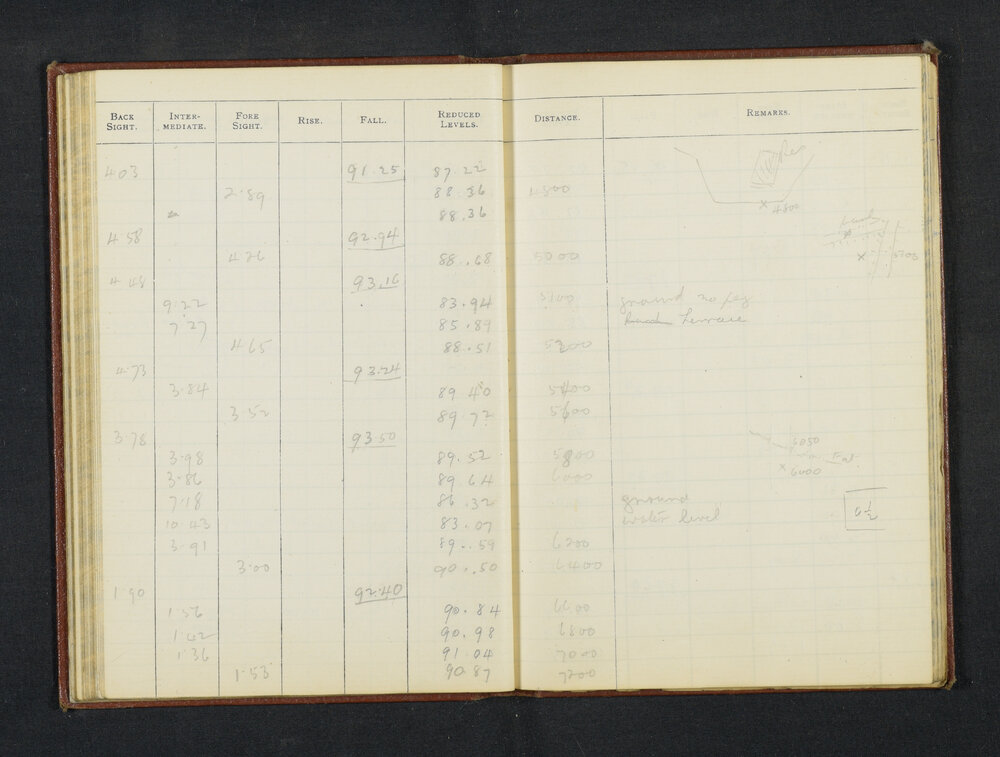 BACK SIGHT. INTER-MEDIATE. FORE SIGHT. RISE. FALL. REDUCED LEVELS. DISTANCE. REMARKS.
4.03 91.25 87.22
2.89 88.36 4800
88.36
× 4800
4.58 92.94
4.26 88.68 5000
× 5200
4.48 93.16
9.22 83.94 ground no peg
7.27 85.89 Terrace
4.65 88.51 5200
4.73 93.24
3.84 89.40 5400
3.52 89.72 5600
3.78 93.50
6050
3.98 89.52 5800
× 6000
3.86 89.64 6000
7.18 86.32 ground
10.43 83.07 water level
3.91 89.59 6200
3.00 90.50 6400
1.90 92.40
1.56 90.84 6600
1.42 90.98 6800
1.36 91.04 7000
1.53 90.87 7200